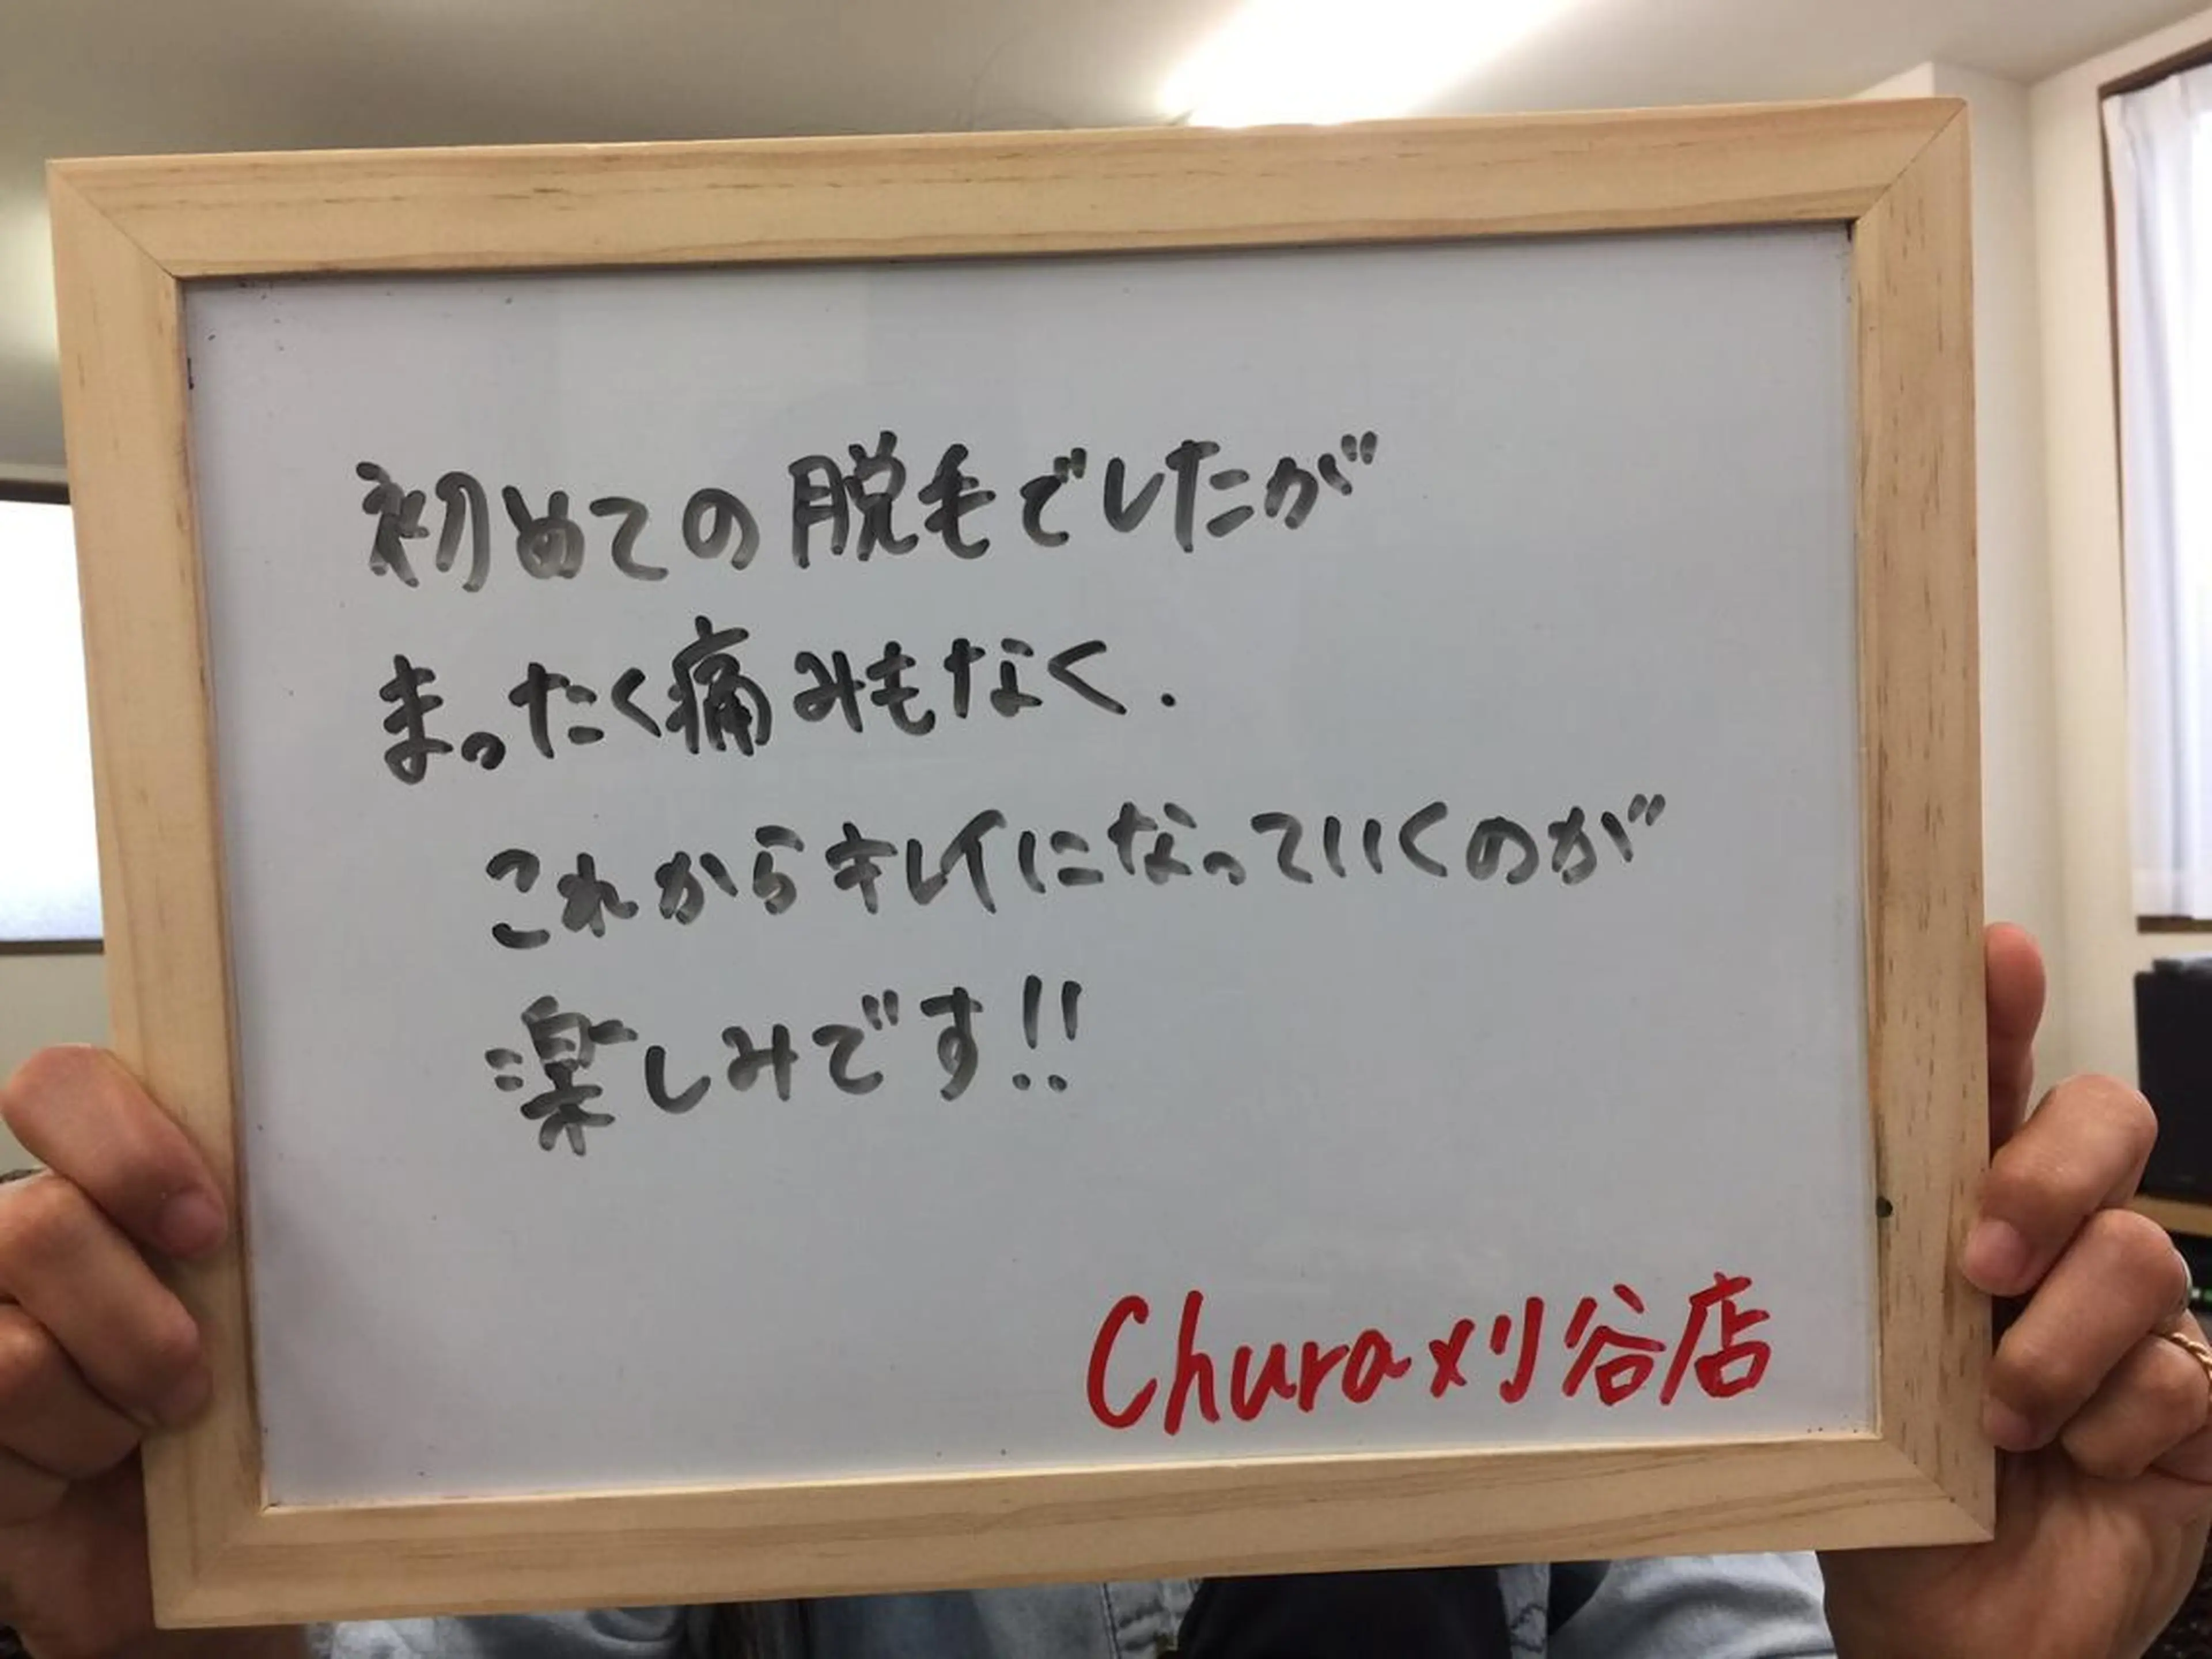 初めての脱毛でしたが
まったく痛みもなく.
これからキレイになっていくのが
楽しみです!!
Chura刈谷店